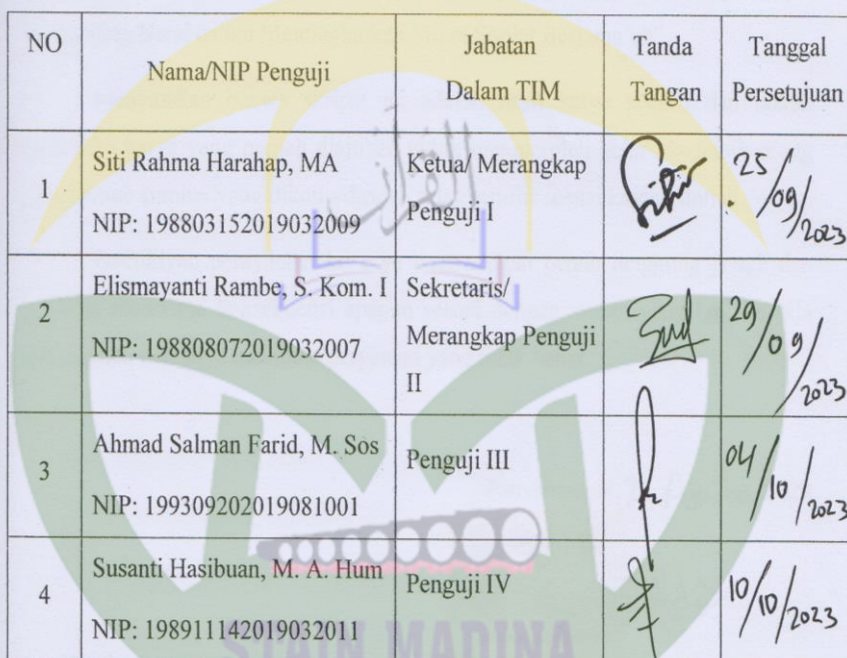 NO
Nama/NIP Penguji
Jabatan
Dalam TIM
Tanda
Tangan
Tanggal
Persetujuan
1
Siti Rahma Harahap, MA
NIP: 198803152019032009
Ketua/ Merangkap
Penguji I
25/09/2023
2
Elismayanti Rambe, S. Kom. I
NIP: 198808072019032007
Sekretaris/
Merangkap Penguji
II
29/09/2023
3
Ahmad Salman Farid, M. Sos
NIP: 199309202019081001
Penguji III
04/10/2023
4
Susanti Hasibuan, M. A. Hum
NIP: 198911142019032011
Penguji IV
10/10/2023
القرآن
STAIN MADINA